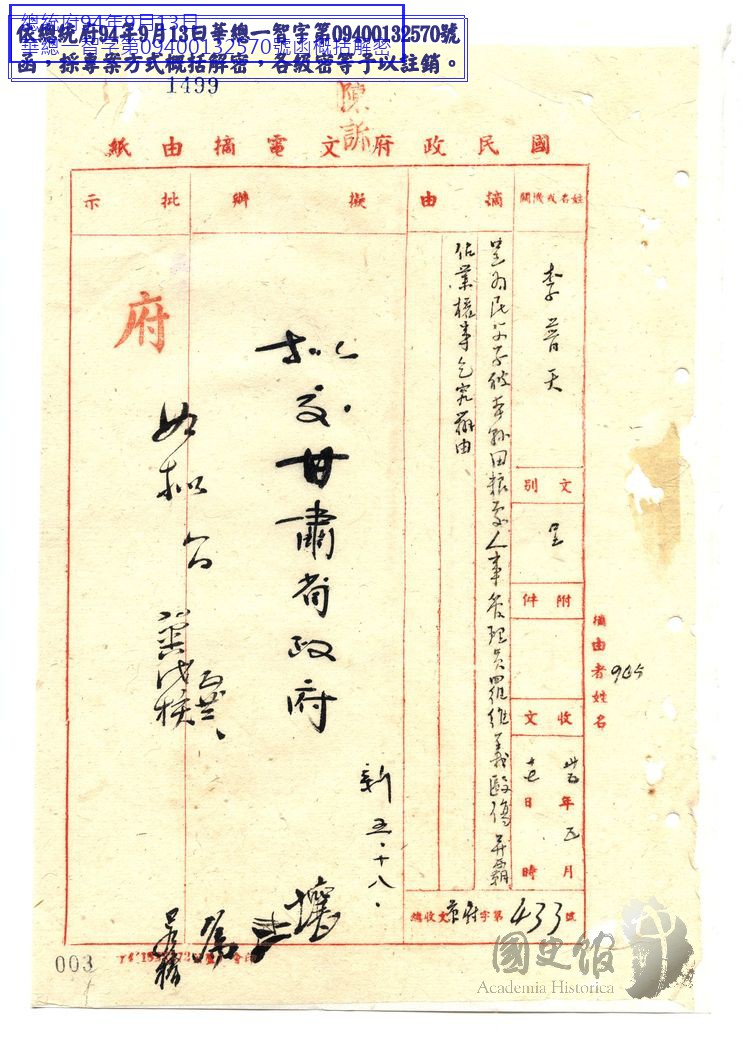 總統府94年9月13日
華總一智字第09400132570號函概括解密
依總統府94年9月13日華總一智字第09400132570號
函，採專案方式概括解密，各級密等予以註銷。
1499
陳訴
國民政府文電摘由紙
姓名或機關
李普天
文別
呈
附件
收文
卅五年五月
十七日 時
摘由
呈為民父子被本縣田糧處人事管理員羅維義毆傷并霸
佔業權事乞究辦由
擬辦
擬交甘肅省政府
新 五.十八.
批示
府
如擬
總收文京府字第433號
摘由者姓名
905
003
國史館
Academia Historica